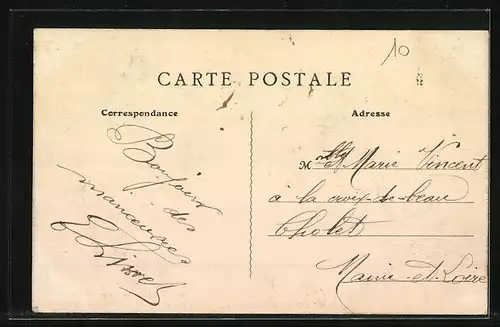 10
CARTE POSTALE
Correspondance
Adresse
Bonjour
des
manoeuvres
Mlle Marie Vincent
à la croix-de-beau
Cholet
Maine-et-Loire